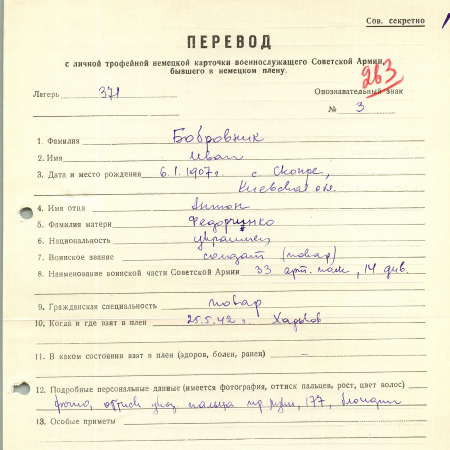 Сов. секретно
ПЕРЕВОД
с личной трофейной немецкой карточки военнослужащего Советской Армии,
бывшего в немецком плену.
263
Лагерь 371 Опознавательный знак
№ 3
1. Фамилия Бобровник
2. Имя Иван
3. Дата и место рождения 6.1.1907г. с Скопце,
Киевская обл.
4. Имя отца Антон
5. Фамилия матери Федорченко
6. Национальность украинец
7. Воинское звание солдат (повар)
8. Наименование воинской части Советской Армии 33 арт. полк, 14 див.
9. Гражданская специальность повар
10. Когда и где взят в плен 25.5.42 г. Харьков
11. В каком состоянии взят в плен (здоров, болен, ранен) –
12. Подробные персональные данные (имеется фотография, оттиск пальцев, рост, цвет волос)
фото, оттиск указ. пальца пр. руки, 177, блондин
13. Особые приметы